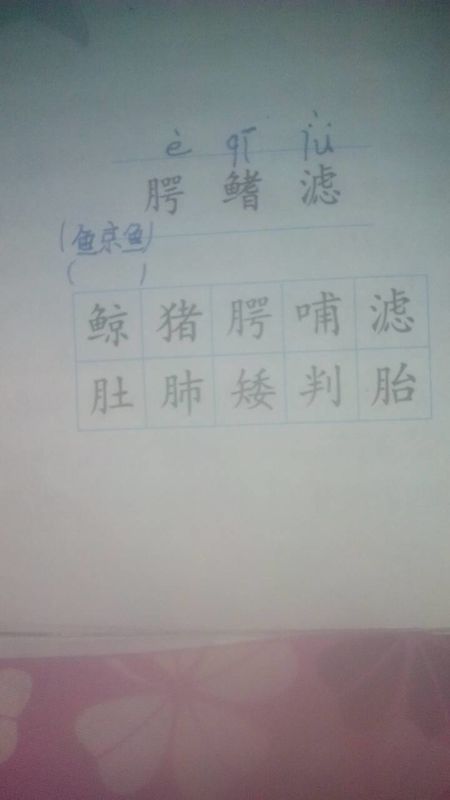 è qī lǜ
腭 鳍 滤
(鲸鱼)
( )
鲸 猪 腭 哺 滤
肚 肺 矮 判 胎